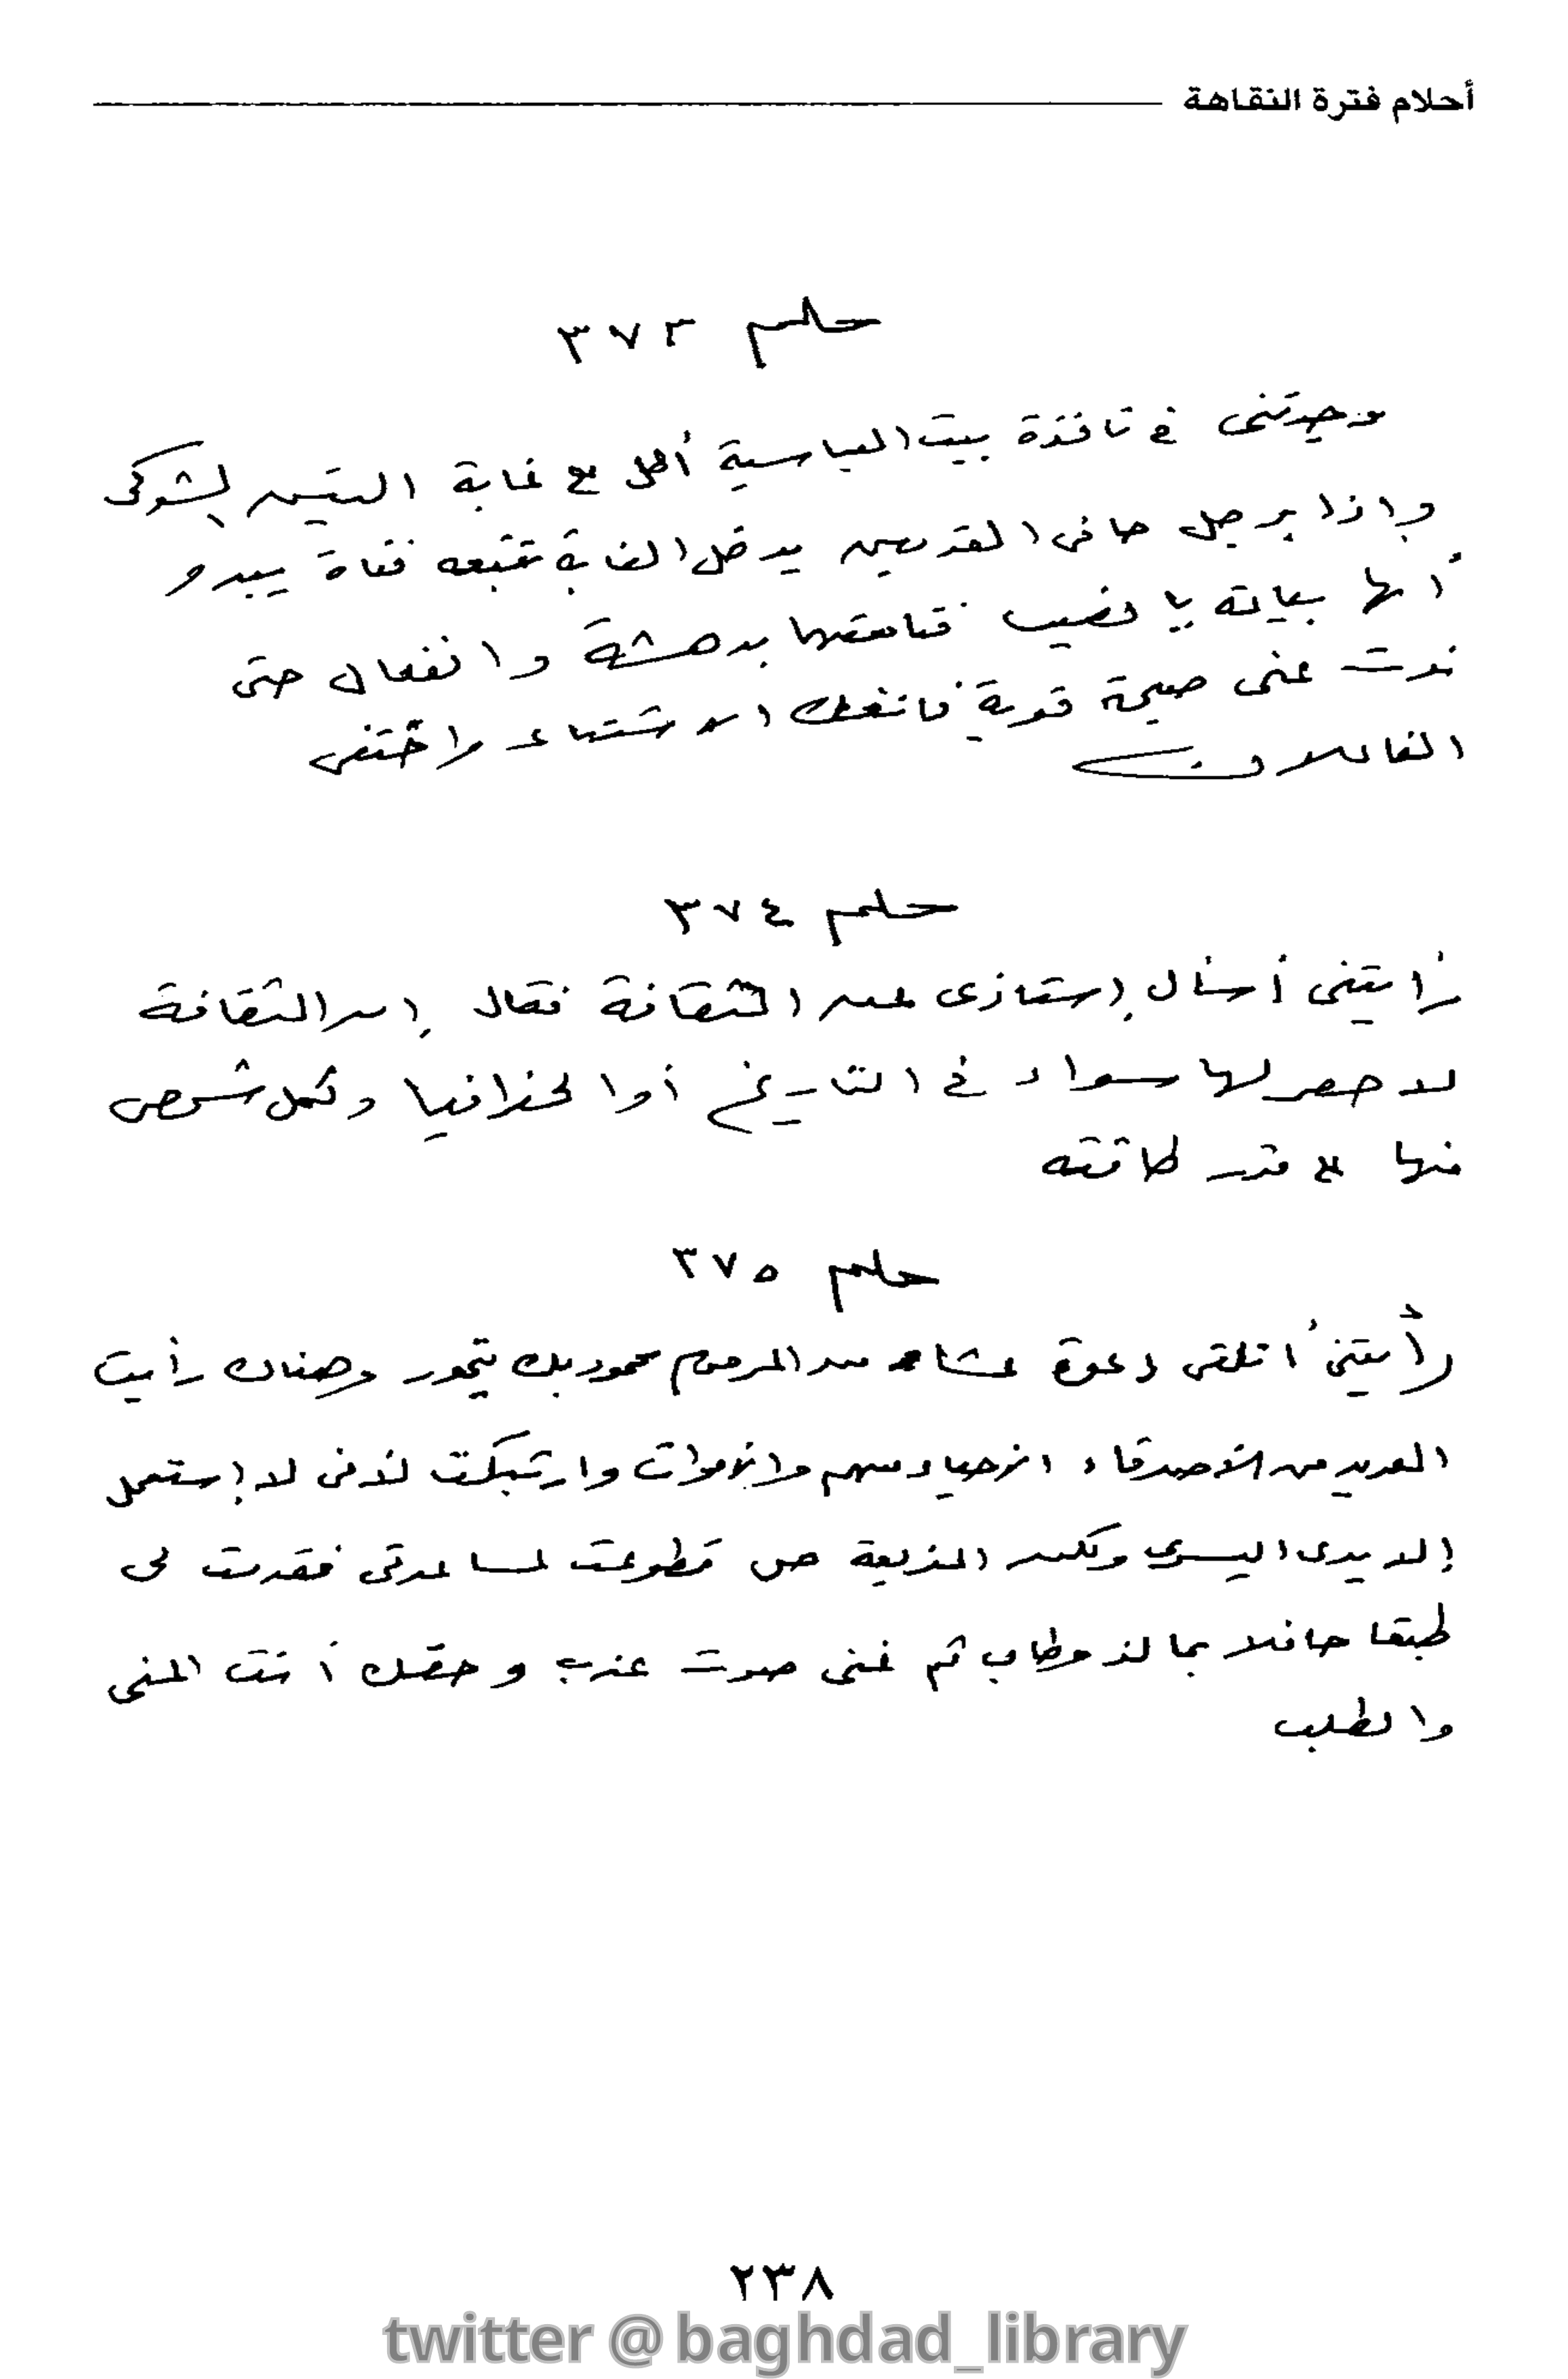 أحلام فترة النقاهة
حلم ٣٧٣
وجدتنى فى نافذة بيت العباسية أطل على غابة التين الشوكى
وإذا برجل حافى القدمين يدخل الغابة تتبعه فتاة يبدو
أنها بياعة يا نصيب فتابعتهما بدهشة وانفعال حتى
ندت عنى صيحة قوية فانفك الاشتهاء واختفى
الفاعلان
حلم ٣٧٤
رأيتنى أسأل إستاذى عن الثقافة فقال إن الثقافة
لا حصر لها سواء فى التاريخ أو الجغرافيا ولكل شخص
منها على قدر طاقته
حلم ٣٧٥
رأيتنى أتلقى دعوة عشاء من المرحوم محمود بك تيمور وهناك رأيت
العديد من الأصدقاء الأحياء منهم والأموات وارتبكت لأنى لا إستعمل
إلا يدى اليسرى ولكن المذيعة تطوعت لمساعدتى فقدمت لى
طبقا حافلا بما لذ وطاب ثم غنى صوت عذب وحقك أنت المنى
والطلب
٢٣٨
twitter @baghdad_library